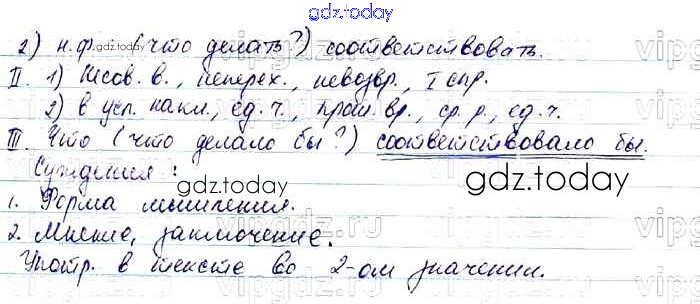 gdz.today
2) н.ф. (что делать?) соответствовать.
II. 1) Несов. в., неперех., невозвр., I спр.
2) в усл. накл., ед. ч., прош. вр., ср. р., ед. ч.
III. Что (что делало бы?) соответствовало бы.
Суждения:
gdz.today
gdz.today
1. Форма мышления.
2. Мнение, заключение.
Употр. в тексте во 2-ом значении.